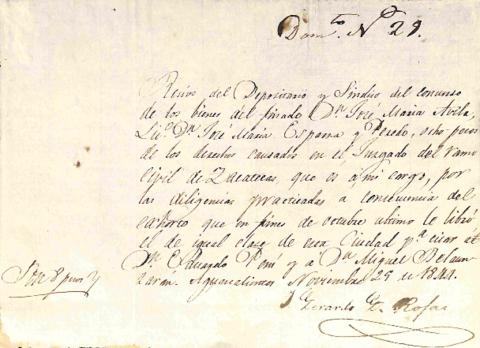 Docum.to N.o 29.
Recivi del Depositario y Sindico del concurso
de los bienes del finado D.n José Maria Avila,
Lic.o D.n José Maria Esparza y Peredo, ocho pesos
de los derechos causados en el Juzgado del ramo
civil de Zacatecas, que es a mi cargo, por
las diligencias practicadas a consecuencia del
exhorto que en fines de octubre ultimo le libró
el de igual clase de esa Ciudad p.a citar a
D.n Eduardo y a D.n Miguel Belaun
zaran. Aguascalientes Noviembre 25 de 1844.
Son 8 pesos
Gerardo G. Rojas